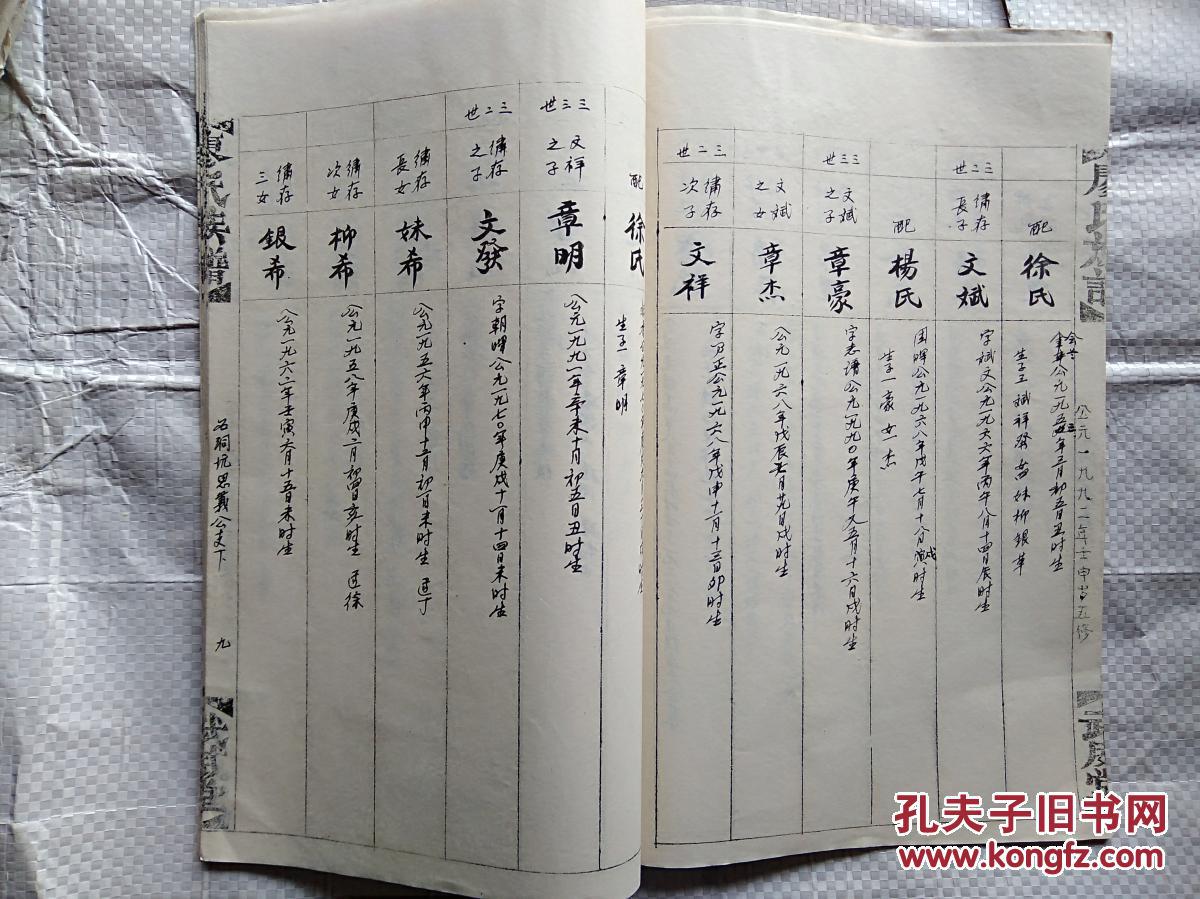 廖氏族譜
公元一九九二年壬申岁五修
武威堂
配
徐氏
生子三斌祥發女妹柳銀華
三二世
繡存
長子
文斌
字斌文公元一九六六年丙午八月十四日辰时生
配
楊氏
国暉公元一九六八年戊午七月十八日戌时生
生子一豪女一杰
三三世
文斌
之子
章豪
字志譜公元一九九〇年庚午又五月十六日戌时生
文斌
之女
章杰
三二世
繡存
次子
文祥
字乃正公元一九六八年戊申十一月十三日卯时生
配
徐氏
生子一章明
三三世
文祥
之子
章明
公元一九九一年辛未十月初五日丑时生
三二世
繡存
之子
文發
字朝暉公元一九七〇年庚戌十一月十四日未时生
繡存
長女
妹希
公元一九五六年丙申十二月初一日未时生 适丁
繡存
次女
柳希
繡存
三女
銀希
公元一九六二年壬寅六月十五日未时生
廖氏族譜
石洞坑思義公支下
九
武威堂
孔夫子旧书网
www.kongfz.com